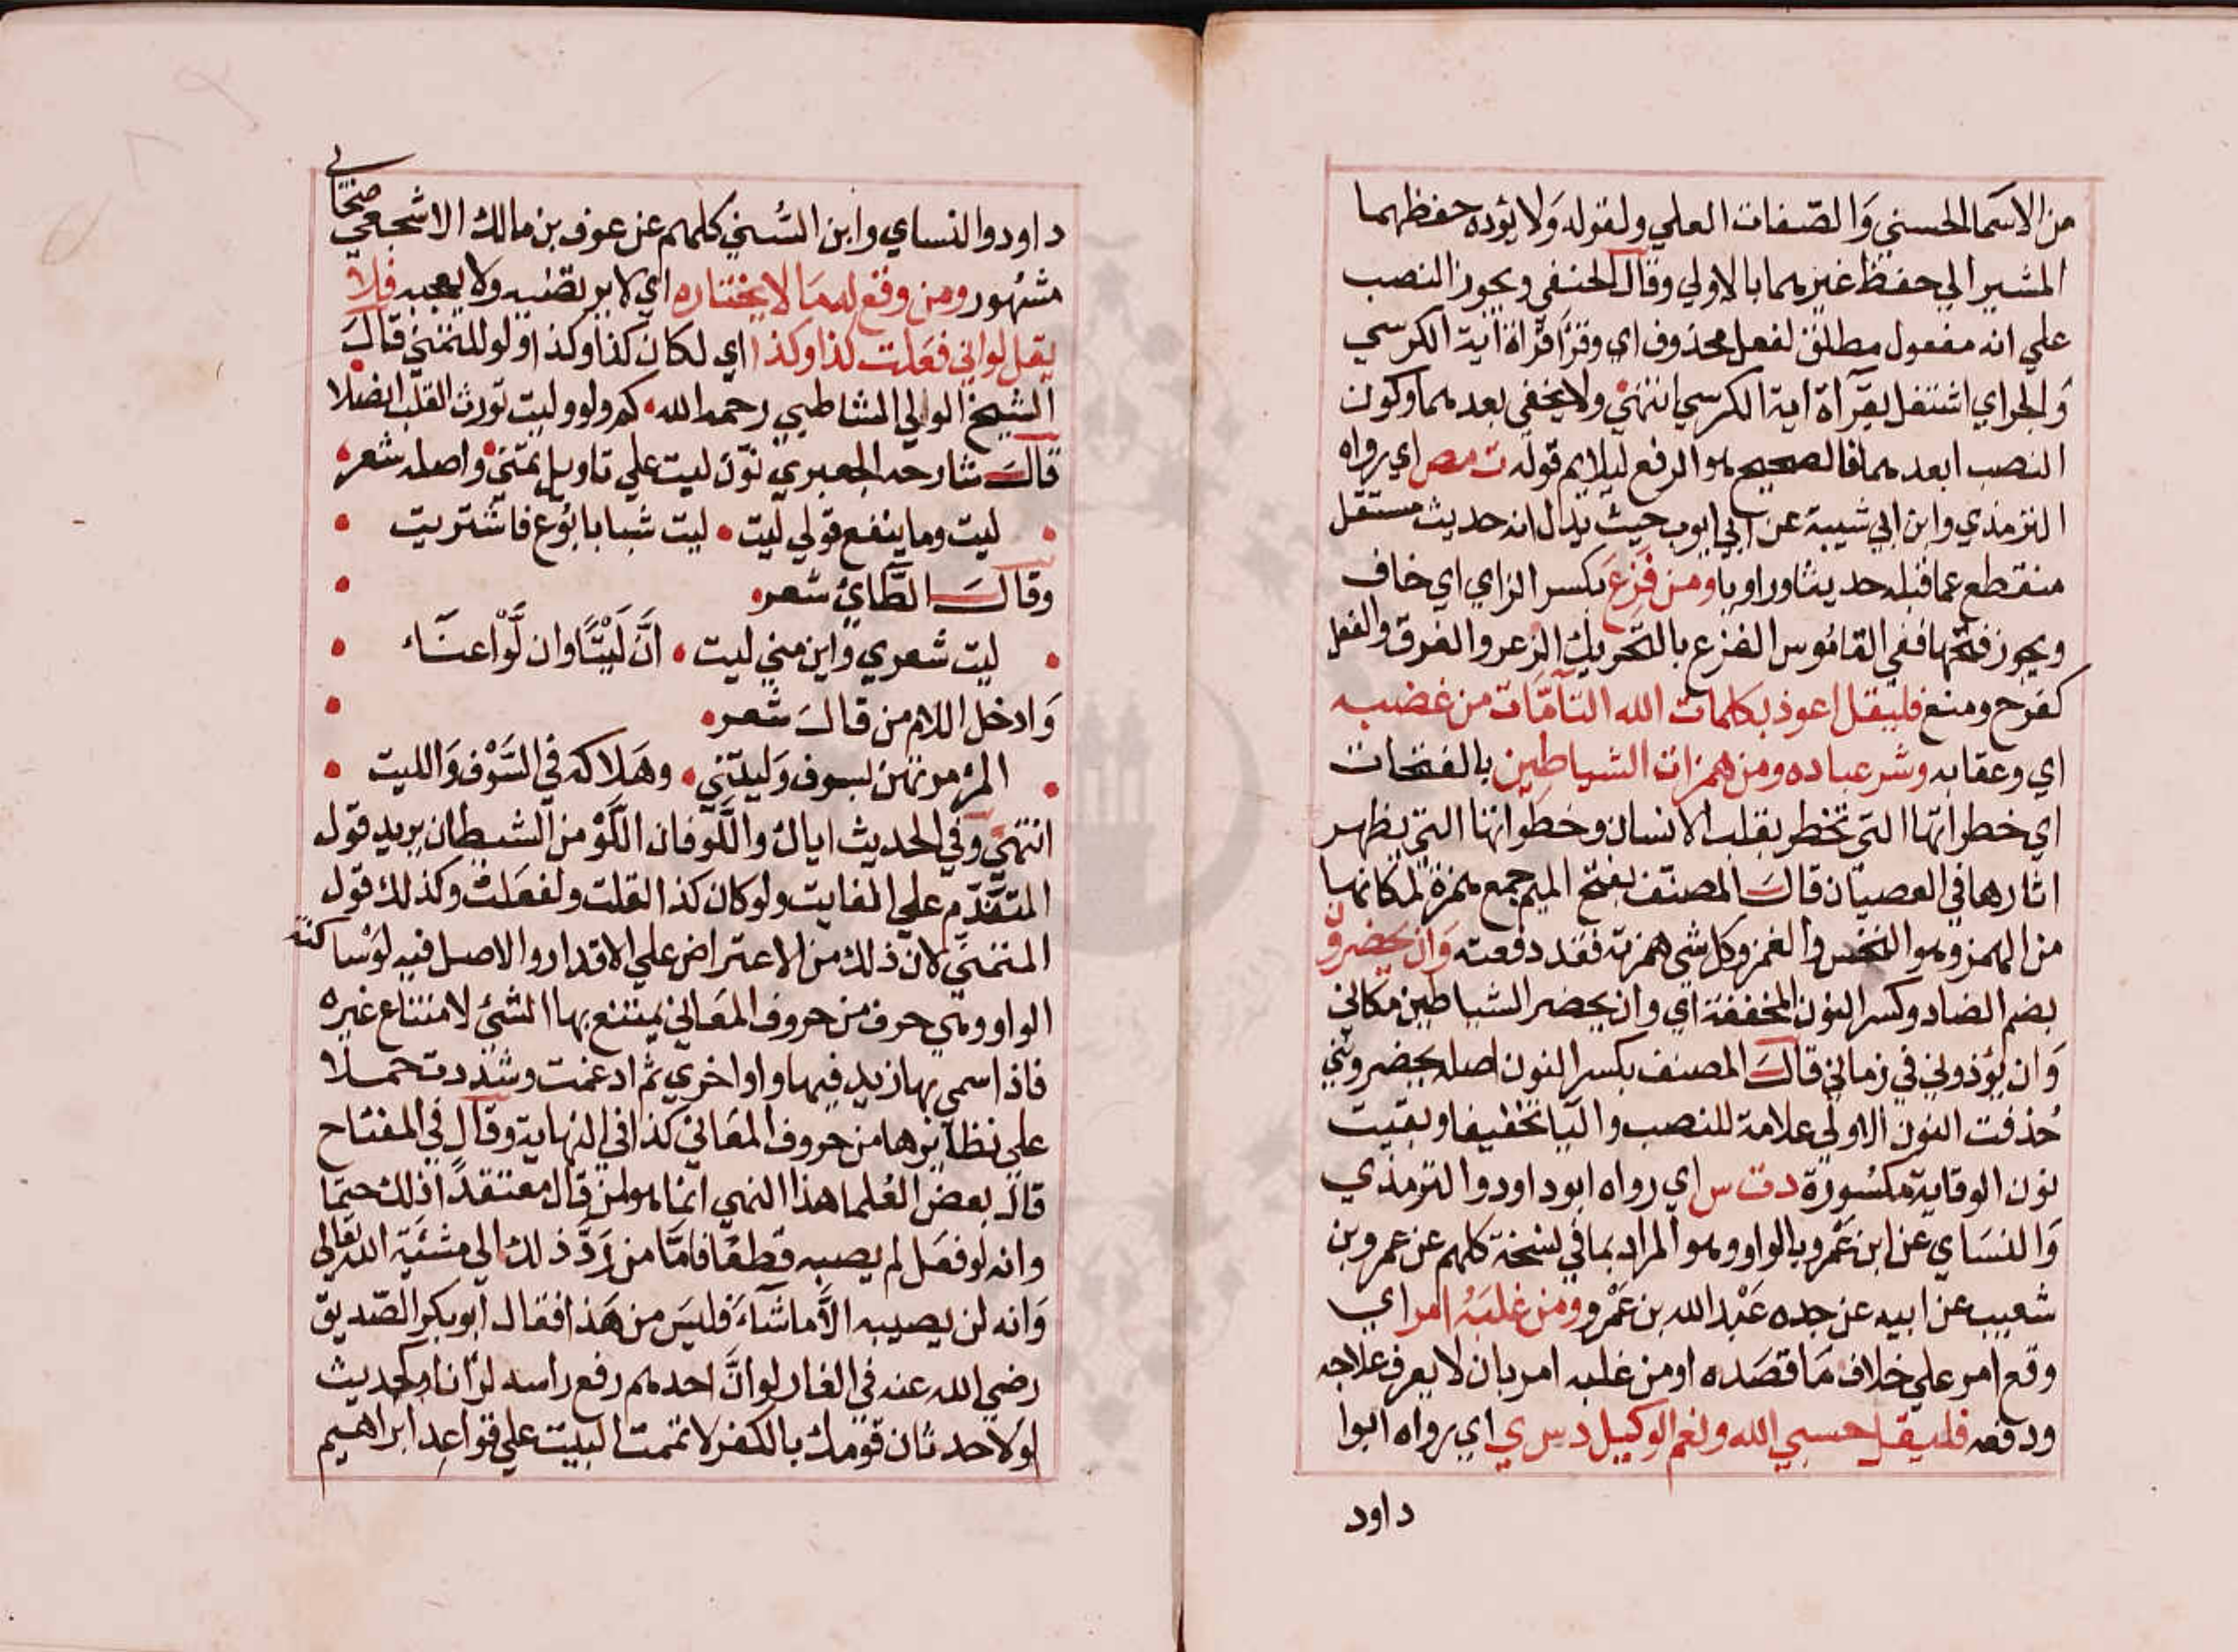 من الاسما الحسني والصفات العلي ولقوله ولا يؤده حفظهما
المشير الي حفظ غيرهما بالاولي وقال الحنفي ويجوز النصب
علي انه مفعول مطلق لفعل محذوف اي وقرأ قراة اية الكرسي
والجر اي اشتغل بقرآة اية الكرسي انتهي ولا يخفي بعدهما وكون
النصب ابعدهما فالصحيح هو الرفع ليلايم قوله ت مص اي رواه
الترمذي وابن ابي شيبة عن ابي ايوب حيث يدل انه حديث مستقل
منقطع عما قبله حديثا وراويا ومن فزع بكسر الزاي اي خاف
ويجوز فتحها ففي القاموس الفزع بالتحريك الذعر والفرق والفعل
كفرح ومنع فليقل اعوذ بكلمات الله التآمّات من غضبه
اي وعقابه وشر عباده ومن همزات الشياطين بالفتحات
اي خطراتها التي تخطر بقلب الانسان وخطواتها التي يظهر
اثارها في العصيان قال المصنف بفتح الميم جمع همزة لمكانها
من الهمز وهو النخس والغمز وكل شي همزته فقد دفعته وان يحضرون
بضم الضاد وكسر النون المخففة اي وان يحضر الشياطين مكاني
وان يؤذوني في زماني قال المصنف بكسر النون اصله يحضرونني
حذفت النون الاولي علامة للنصب واليا تخفيفا وبقيت
نون الوقاية مكسورة د ت س اي رواه ابو داود والترمذي
والنساي عن ابن عمرو بالواو وهو المراد بما في نسخة كلهم عن عمرو بن
شعيب عن ابيه عن جده عبد الله بن عمرو ومن غلبه امر اي
وقع امر علي خلاف ما قصده او من غلبه امر بان لا يعرف علاجه
ودفعه فليقل حسبي الله ونعم الوكيل د س ي اي رواه ابوا
داود
داود والنساي وابن السني كلهم عن عوف بن مالك الاشجعي صحابي
مشهور ومن وقع له ما لا يختاره اي لا يرتضيه ولا يعجبه فلا
يقل لو اني فعلت كذا وكذا اي لكان كذا وكذا ولو للتمني قال
الشيخ الوالي الشاطبي رحمه الله كم ولو وليت تورث القلب انصلا
قال شارحه الجعبري نوّن ليت علي تاويل تمني واصله شعر
ليت وما ينفع قولي ليت ليت شبابا بوع فاشتريت
وقال الطآئي شعر
ليت شعري واين مني ليت انّ ليتًا وان لوّا عنآء
وادخل اللام من قال شعر
المرء مرتهن بسوف وليتني وهلاكه في السوف والليت
انتهي وفي الحديث اياك واللّو فان اللّو من الشيطان يريد قول
المتقدّم علي الفايت ولو كان كذا لقلت ولفعلت وكذلك قول
المتمني لان ذلك من الاعتراض علي الاقدار والاصل فيه لو ساكنة
الواو وهي حرف من حروف المعاني يمتنع بها الشي لامتناع غيره
فاذا سمي بها زيد فيها واو اخري ثم ادغمت وشددت حملا
علي نظآئرها من حروف المعاني كذا في النهاية وقال في المفتاح
قال بعض العلما هذا النهي انما هو لمن قال معتقدًا ذلك حتما
وانه لو فعل لم يصبه قطعًا فامّا من ردّ ذلك الي مشئية الله تعالي
وانه لن يصيبه الا ما شآء فليس من هذا فقال ابو بكر الصديق
رضي الله عنه في الغار لو انّ احدهم رفع راسه لرآنا وكحديث
لولا حدثان قومك بالكفر لاتممت البيت علي قواعد ابراهيم